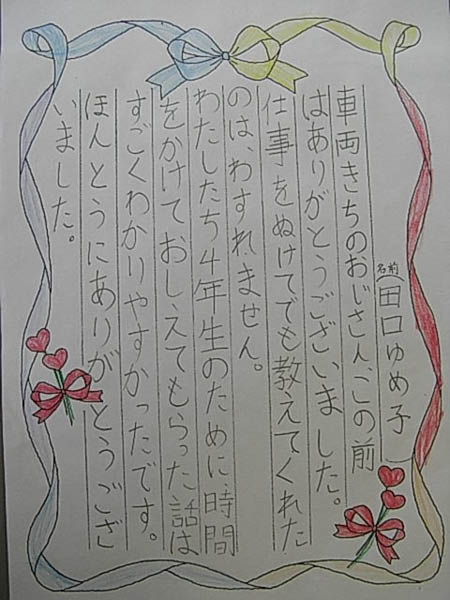 名前(田口ゆめ子)
車両きちのおじさん、この前
はありがとうございました。
仕事をぬけてでも教えてくれた
のは、わすれません。
わたしたち4年生のために、時間
をかけておしえてもらった話は
すごくわかりやすかったです。
ほんとうにありがとうござ
いました。